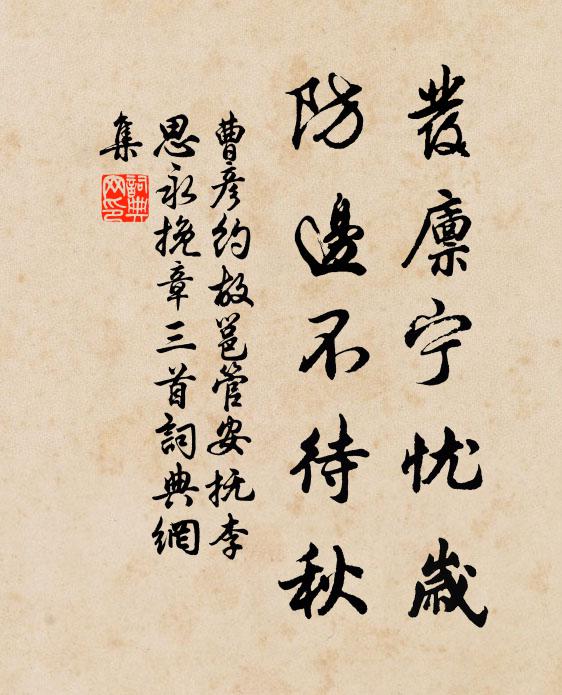 發廪宁忧歲
防邊不待秋
曹彦約故邕管安抚李
思永挽章三首詞典網
集
詞典
网印